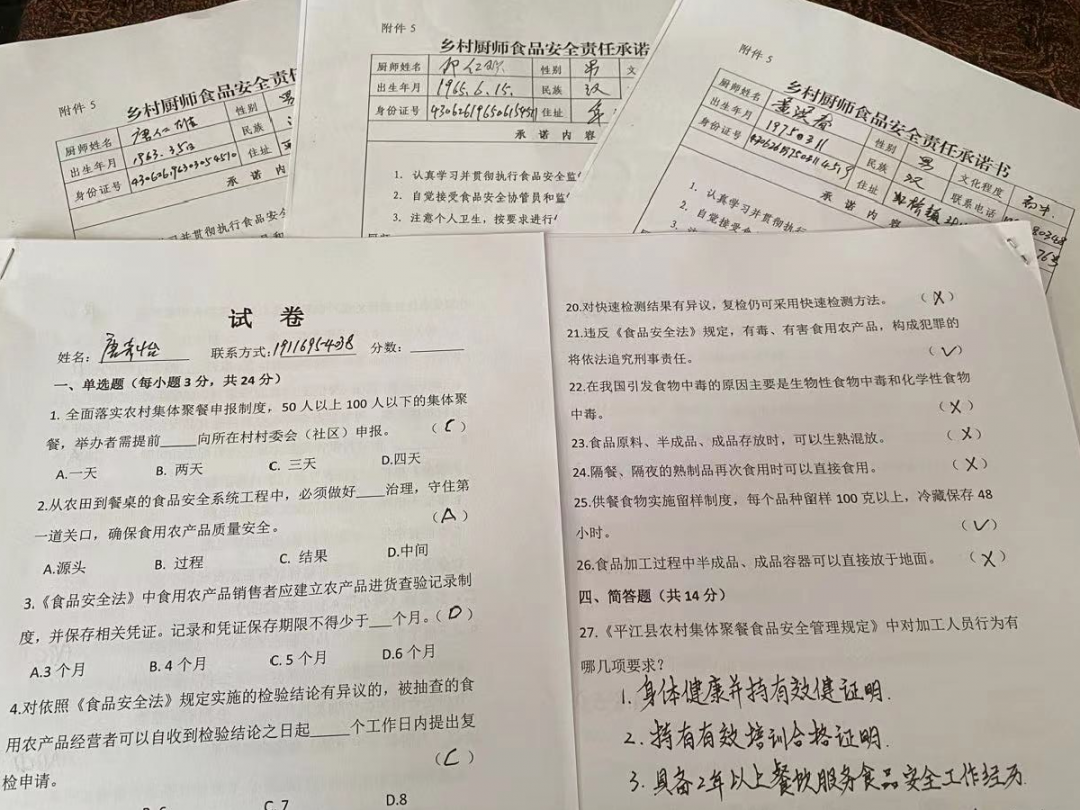 附件 5
乡村厨师食品安全责
厨师姓名 性别 男
出生年月 民族
身份证号 住址
承 诺 内
习并贯彻执行食品安全
附件 5
乡村厨师食品安全责任承诺
厨师姓名 性别 男 文
出生年月 1965.6.15. 民族 汉
身份证号 住址
承 诺 内 容
1. 认真学习并贯彻执行食品安全监
2. 自觉接受食品安全协管员和监
3. 注意个人卫生，按要求进行
附件 5
乡村厨师食品安全责任承诺书
厨师姓名 性别 男 文化程度 高中
出生年月 19750311 民族 汉 联系电话
身份证号 住址
承 诺 内 容
1. 认真学习并贯彻执行
2. 自觉接受食
试 卷
姓名： 联系方式： 分数：
一、单选题（每小题 3 分，共 24 分）
1. 全面落实农村集体聚餐申报制度，50 人以上 100 人以下的集体聚
餐，举办者需提前_____向所在村村委会（社区）申报。 （ C ）
A.一天 B. 两天 C. 三天 D.四天
2.从农田到餐桌的食品安全系统工程中，必须做好____治理，守住第
一道关口，确保食用农产品质量安全。 （ A ）
A.源头 B. 过程 C. 结果 D.中间
3.《食品安全法》中食用农产品销售者应建立农产品进货查验记录制
度，并保存相关凭证。记录和凭证保存期限不得少于___个月。（ D ）
A.3 个月 B. 4 个月 C. 5 个月 D.6 个月
4.对依照《食品安全法》规定实施的检验结论有异议的，被抽查的食
用农产品经营者可以自收到检验结论之日起_____个工作日内提出复
检申请。 （ C ）
C. 7 D.8
20.对快速检测结果有异议，复检仍可采用快速检测方法。 （ X ）
21.违反《食品安全法》规定，有毒、有害食用农产品，构成犯罪的
将依法追究刑事责任。 （ ✓ ）
22.在我国引发食物中毒的原因主要是生物性食物中毒和化学性食物
中毒。 （ X ）
23.食品原料、半成品、成品存放时，可以生熟混放。 （ X ）
24.隔餐、隔夜的熟制品再次食用时可以直接食用。 （ X ）
25.供餐食物实施留样制度，每个品种留样 100 克以上，冷藏保存 48
小时。 （ ✓ ）
26.食品加工过程中半成品、成品容器可以直接放于地面。 （ X ）
四、简答题（共 14 分）
27.《平江县农村集体聚餐食品安全管理规定》中对加工人员行为有
哪几项要求？
1. 身体健康并持有效健证明.
2. 持有有效培训合格证明.
3. 具备2年以上餐饮服务食品安全工作经历.